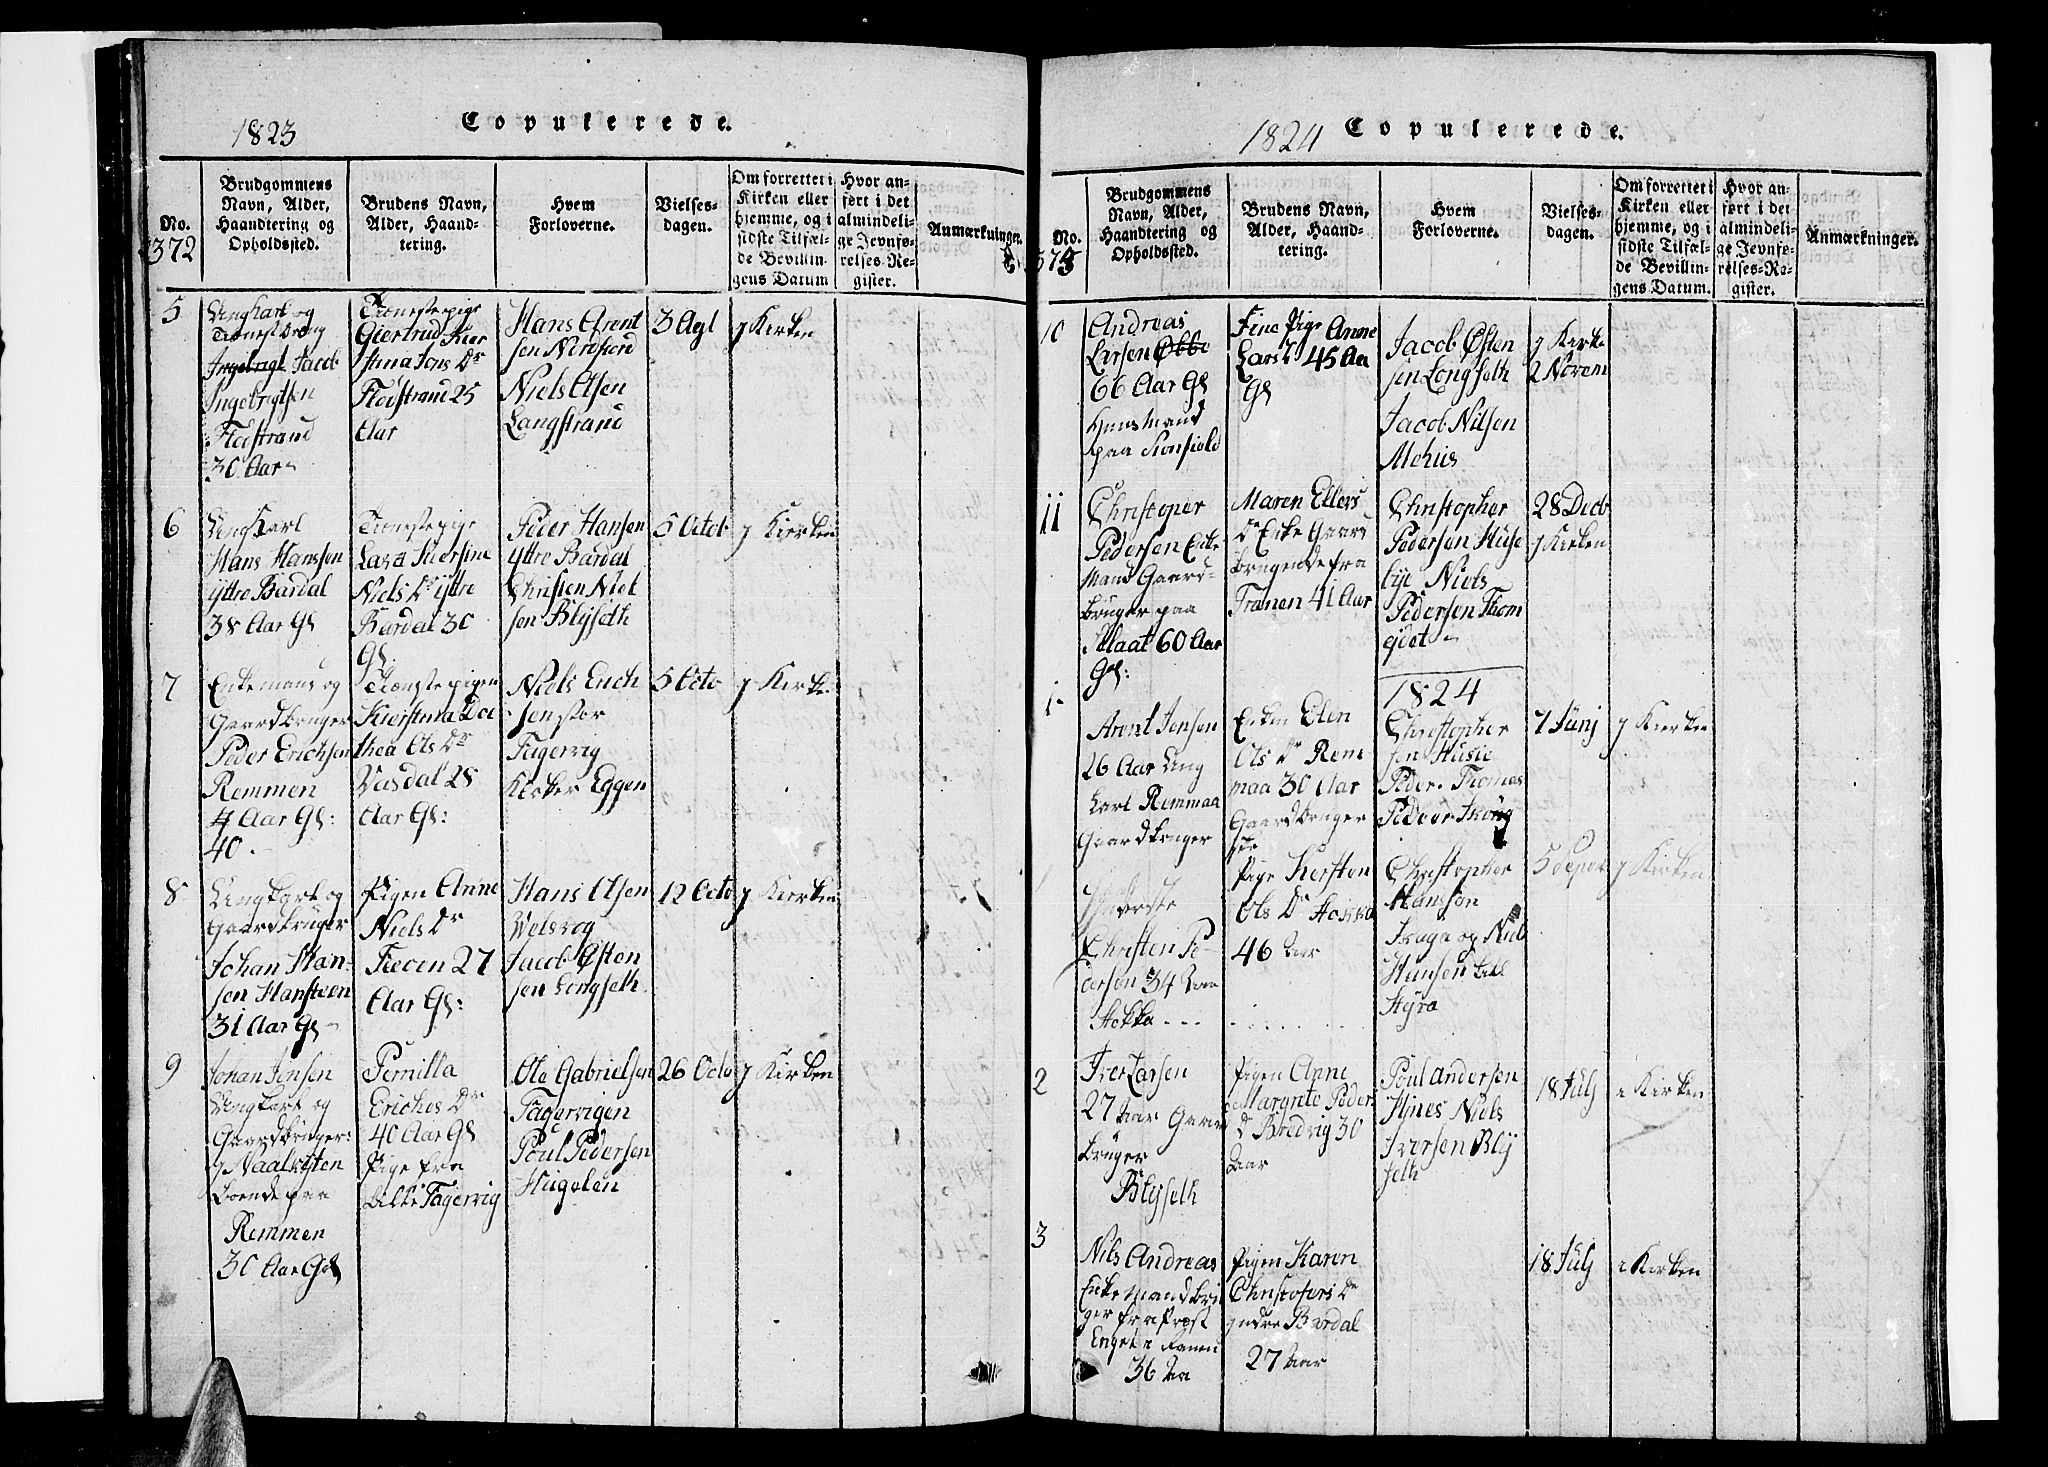 1823
Copulerede.
No.
372
Brudgommens
Navn, Alder,
Haandtering og
Opholdssted.
Brudens Navn,
Alder, Haand-
tering.
Hvem
Forloverne.
Vielses-
dagen.
Om forrettet i
Kirken eller
hjemme, og i
sidste Tilfæl-
de Bevillin-
gens Datum
Hvor an-
ført i det
almindeli-
ge Jevnfø-
relses-Re-
gister.
Anmærkninger.
5
Ungkarl og
Jacob
Ingebrigtsen
Flostrand
30 Aar
Tienestepige
Giertrud Kier
stina Jons Dr
Flostrand 25
Aar
Hans Arent
sen Nordfiord
Niels Olsen
Langstrand
3 Agl
j Kirken
6
Ungkarl
Hans Hanssen
yttre Bardal
38 Aar Gl
Tienestepige
Lara Kiersine
Niels Dr yttre
Bardal 30
Gl
Peder Hansen
yttre Bardal
Christen Niel
sen Blyseth
5 Octob
j Kierken
7
Enkemand og
Gaardbruger
Peder Erichsen
Remmen
4 Aar Gl:
40 -
Tienestepigen
Kierstina Do
thea Ols Dr
Vasdal 28
Aar Gl:
Niels Erich
sen stor
Fagervig
Klaker Eggen
5 Octo
j Kirke
8
Ungkarl og
Gaardbruger
Johan Han-
sen Hansteen
31 Aar Gl
Pigen Anne
Niels Dr
27
Aar Gl:
Hans Olsen
Welsvog
Jacob Østen
sen Longseth
12 Octo
j Kirken
9
Johan Jensen
Ungkarl og
Gaardbruger:
boende paa
Remmen
30 Aar Gl
Pernilla
Eriches Dr
40 Aar Gl
Pige fra
Lille Fagervig
Ole Gabrielsen
Fagervigen
Poul Pedersen
Hugelen
26 Octo
j Kirken
1824
Copulerede.
No.
Brudgommens
Navn, Alder,
Haandtering og
Opholdssted.
Brudens Navn,
Alder, Haand-
tering.
Hvem
Forloverne.
Vielses-
dagen.
Om forrettet i
Kirken eller
hjemme, og i
sidste Tilfæl-
de Bevillin-
gens Datum.
Hvor an-
ført i det
almindeli-
ge Jevnfø-
relses-Re-
gister.
Anmærkninger.
10
Andreas
Larsen
66 Aar Gl
Huusmand
paa
Pige Anne
Lars 45 Aa
Gl
Jacob Østen
sen Longseth
Jacob Nilsen
Mehus
j Kirke
2 Novem
11
Christoper
Pedersen Enke
Mand Gaard-
bruger paa
60 Aar
Gl:
Maren Ellers
Dr Enke Gaard
brugende fra
Tranen 41 Aar
Christopher
Pedersen Huse
bye Niels
Pedersen Thom
28 Decb
j Kirken
1824
1
Arent Jensen
26 Aar Ung
karl Remmaa
Gaardbruger
Enken Elen
Ols Dr Rem
maa 30 Aar
Gaardbruger
Christopher
Peder Thomas
7 Junj
j Kierken
Christen Pe-
dersen 34 Aar
Stokka
Pige Kersten
Ols Dr Stokka
46 Aar
Christopher
Hansen
og Niels
Hansen
j Kirken
2
Iver Larsen
27 Aar Gaard
bruger
Blyseth
Pigen Anne
Margrete Peders
Dr Bredvig 30
Aar
Poul Andersen
Niels
Iversen Bly
seth
18 Julj
i Kirken
3
Nils Andreas
Enkemand bru
ger fra Præst
Enget i Ranen
36 Aa
Pigen Karen
Christofers Dr
jndre Bardal
27 Aar
18 Julj
i Kirken